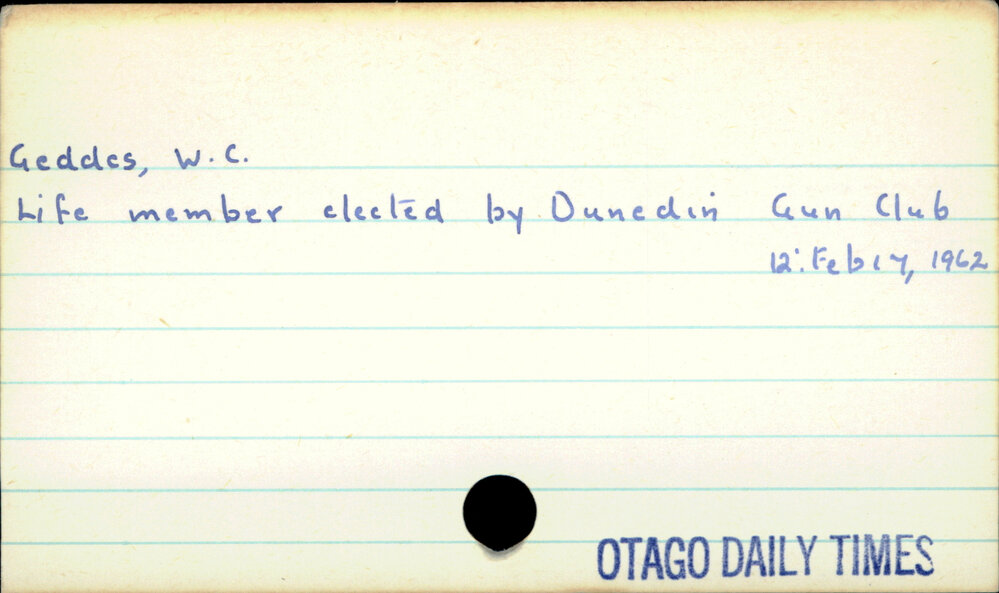 Geddes, W.C.
Life member elected by Dunedin Gun Club
12: Feb 17, 1962
OTAGO DAILY TIMES